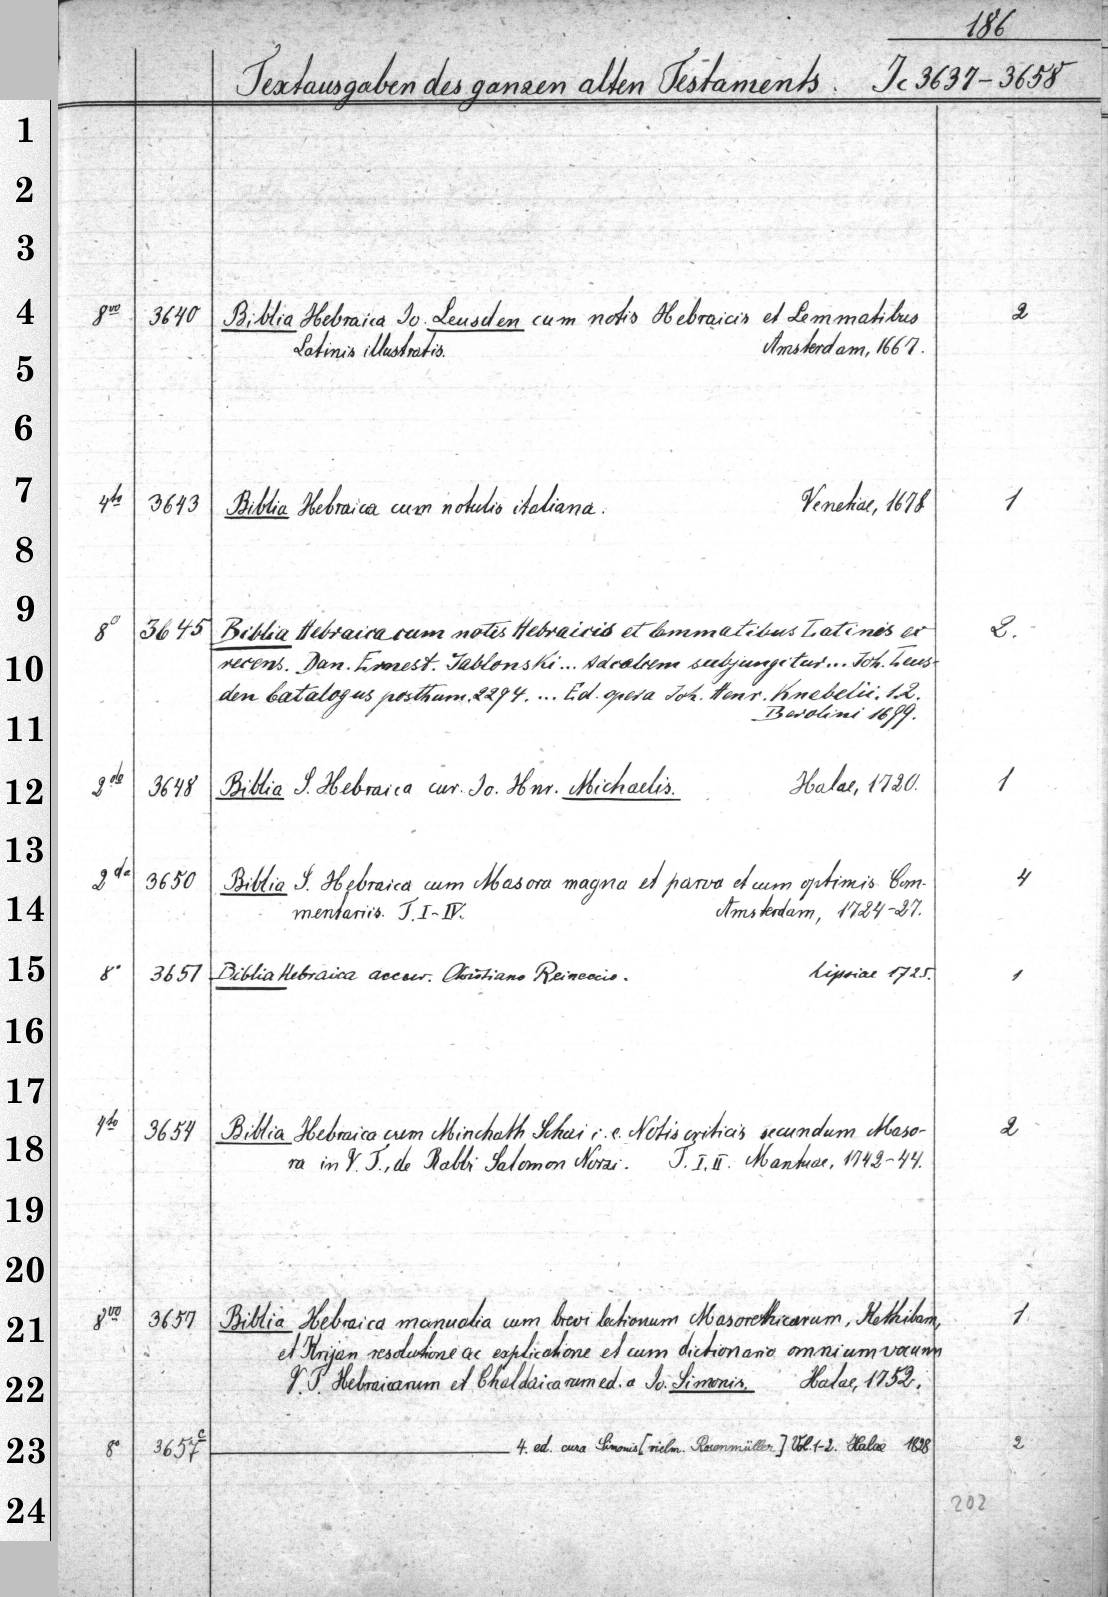 186
Textausgaben des ganzen alten Testaments. Jc 3637-3658
1
2
3
4 8vo 3640 Biblia Hebraica Jo. Leusden cum notis Hebraicis et Lemmatibus 2
5 Latinis illustratis. Amsterdam, 1667.
6
7 4to 3643 Biblia Hebraica cum notulis italiana. Venetiae, 1678 1
8
9 8° 3645 Biblia Hebraica cum notis Hebraicis et lemmatibus Latinis ex 2.
10 recens. Dan. Ernest. Jablonski... Ad calcem subjungitur... Joh. Leus-
den Catalogus posthum. 2294. ... Ed. opera Joh. Henr. Knebelii. 1.2.
11 Berolini 1699.
12 2do 3648 Biblia S. Hebraica cur. Jo. Hnr. Michaelis. Halae, 1720. 1
13 2do 3650 Biblia S. Hebraica cum Masora magna et parva et cum optimis Com- 4
14 mentariis. T. I-IV. Amsterdam, 1724-27.
15 8° 3651 Biblia Hebraica accur. Christiano Reineccio. Lipsiae 1725. 1
16
17
4to 3654 Biblia Hebraica cum Minchath Schai i. e. Notis criticis secundum Maso- 2
18 ra in V. T., de Rabbi Salomon Norzi. T. I, II. Mantuae, 1742-44.
19
20
21 8vo 3657 Biblia Hebraica manualia cum brevi lectionum Masorethicarum, Kethiban, 1
et Krijan resolutione ac explicatione et cum dictionario omnium vocum
22 V. T. Hebraicarum et Chaldaicarum ed. a Jo. Simonis. Halae, 1752.
23 8° 3657c 4. ed. cura Simonis [vielm. Rosenmüller] Vol. 1-2. Halae 1828 2
24 202